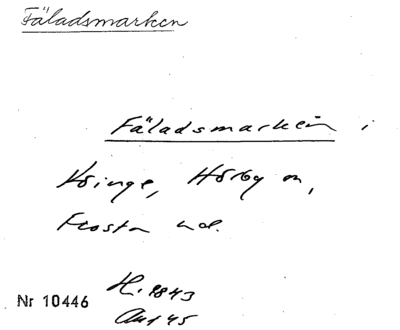 Fäladsmarken
Fäladsmarken i
Kvinge, Hörby sn,
Frosta hd.
Nr 10446
H. 1843